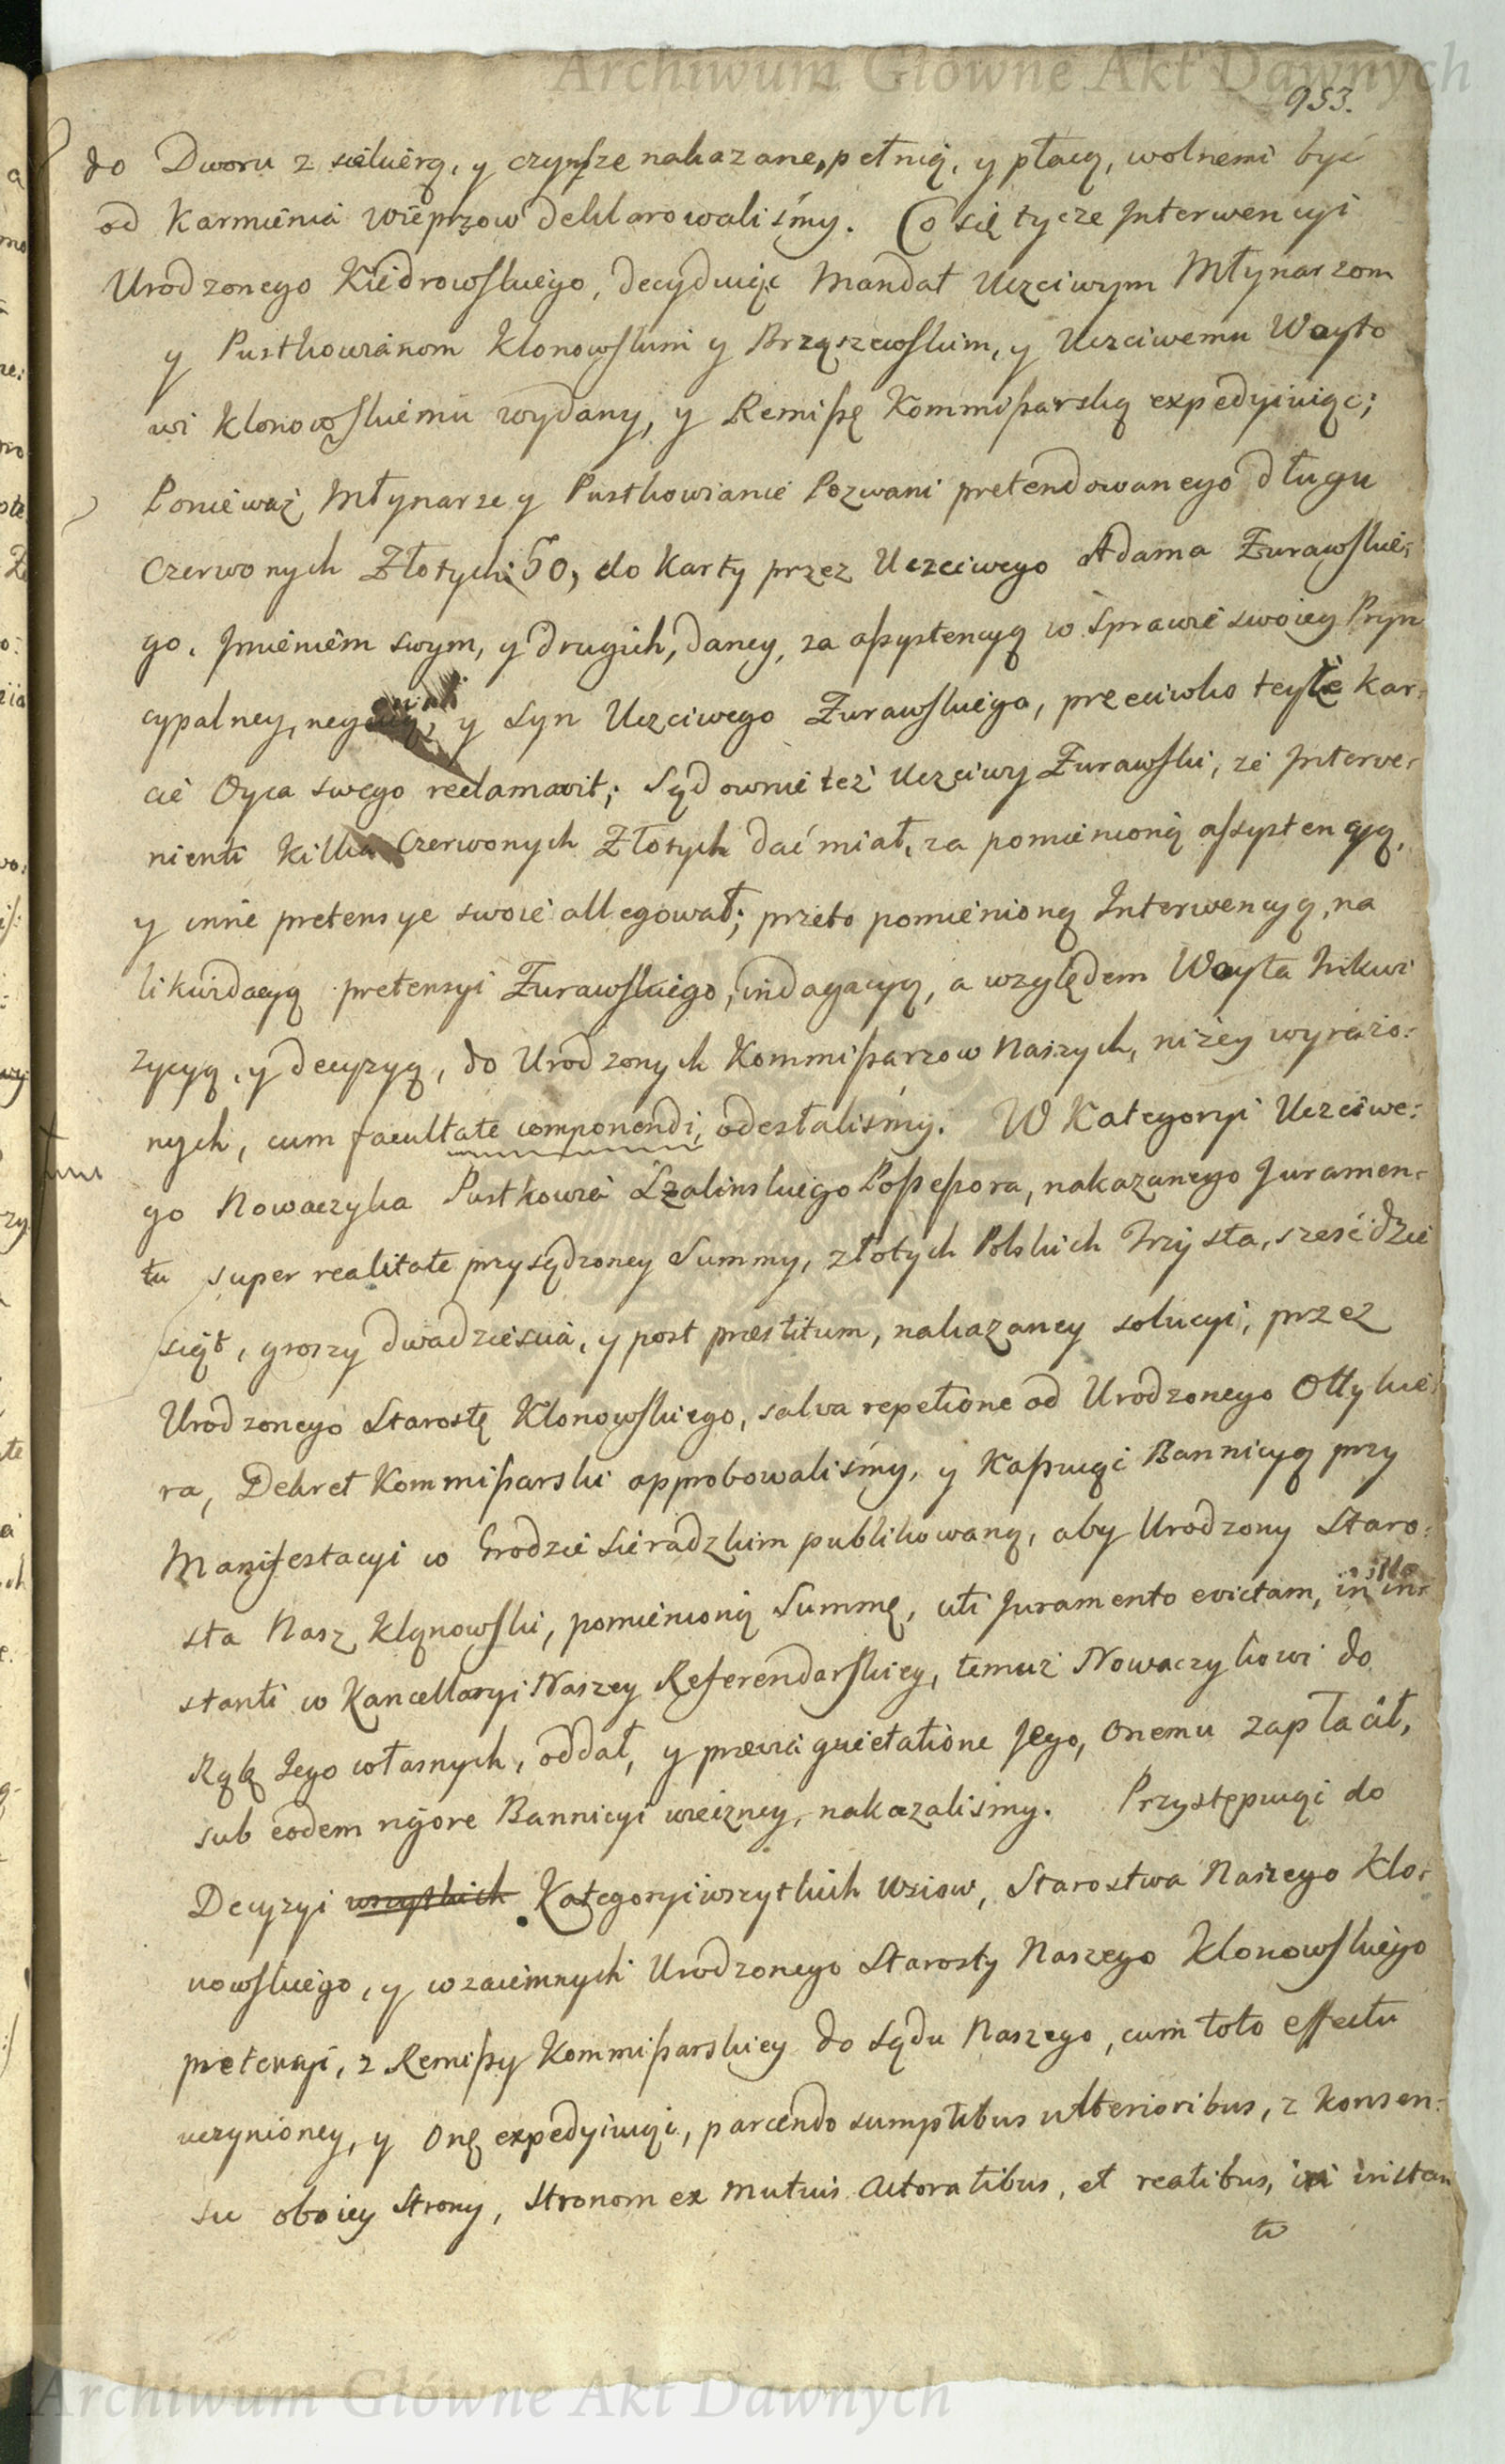 Archiwum Główne Akt Dawnych
953.
do Dworu z siekierą, y czynsze nakazane, pełnią, y płacą, wolnemi być
od Karmienia Wieprzow deklarowaliśmy. Co się tycze Interwencyi
Urodzonego Kiedrowskiego, decyduiąc Mandat Uczciwym Młynarzom
y Pustkowianom Klonowskim y Brząszewskim, y Uczciwemu Woyto
wi Klonowskiemu wydany, y Remissę Kommissarską expedyiuiąc;
Ponieważ Młynarze y Pustkowianie Pozwani pretendowanego długu
Czerwonych Złotych 50, do Karty przez Uczciwego Adama Żurawskie:
go, Imieniem swym, y drugich, daney, za assystencyą w sprawie swoiey Pryn
cypalney, y Syn Uczciwego Żurawskiego, przeciwko teyże Kar:
cie Oyca swego reclamavit; Sądownie też Uczciwy Żurawski, że Interve:
nienti kilka Czerwonych Złotych dać miał, za pomienioną assystencyą,
y inne pretensye swoie allegował; przeto pomienioną Interwencyą, na
likwidacyą pretensyi Żurawskiego, indagacyą, a względem Woyta Inkwi
zycyą, y decyzyą, do Urodzonych Kommissarzow Naszych, niżey wyrażo:
nych, cum facultate componendi, odesłaliśmy. W Kategoryi Uczciwe:
go Nowaczyka Pustkowia Possessora, nakazanego Juramen:
tu super realitate przysądzoney Summy, złotych Polskich Trzysta, sześćdzie
siąt, groszy dwadzieścia, y post præstitum, nakazaney solucyi, przez
Urodzonego Starostę Klonowskiego, salva repetione od Urodzonego Ottykie:
ra, Dekret Kommissarski approbowaliśmy, y Kassuiąc Bannicyą przy
Manifestacyi w Grodzie Sieradzkim publikowaną, aby Urodzony Staro:
sta Nasz Klonowski, pomienioną Summę, uti Juramento evictam, in in:
stanti w Kancellaryi Naszey Referendarskiey, temuż Nowaczykowi do
Rąk Jego własnych, oddał, y prævia quietatione Jego, onemu zapłacił,
sub eodem rigore Bannicyi wieczney, nakazaliśmy. Przystępuiąc do
Decyzyi wszystkich Kategoryi wszytkich Wsiow, Starostwa Naszego Klo:
nowskiego, y wzaiemnych Urodzonego Starosty Naszego Klonowskiego
pretensyi, z Remissy Kommissarskiey do Sądu Naszego, cum toto effectu
uczynioney, y Onę expedyiuiąc, parcendo sumptibus ulterioribus, z Konsen:
su oboiey Strony, Stronom ex mutuis Actoratibus, et reatibus, in instan
to
Archiwum Główne Akt Dawnych